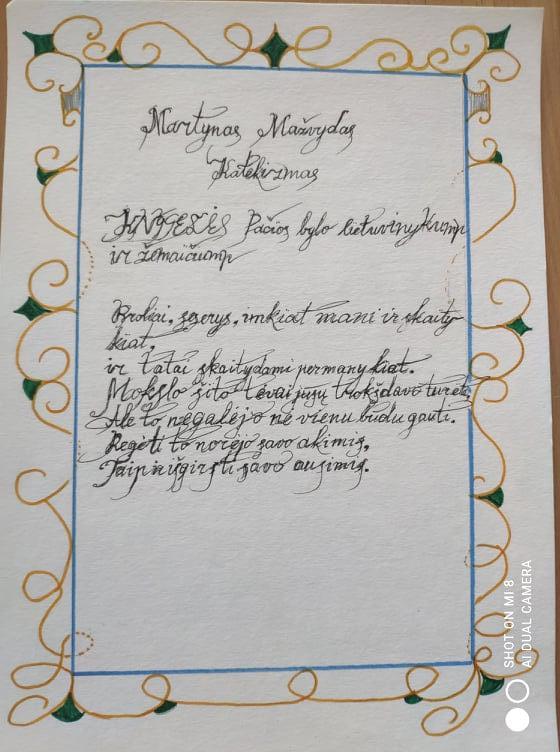 Martynas Mažvydas
Katekizmas
KNYGELĖS Pačios bylo lietuvinykump
ir žemaičiump
Broliai, seserys, imkiat mani ir skaity
kiat,
ir tatai skaitydami permanykiat.
Mokslo šito tėvai jūsų trokšdavo turėti,
Ale to negalėjo ne vienu būdu gauti.
Regėti to norėjo savo akimis,
Taip ir išgirsti savo ausimis.
SHOT ON MI 8
AI DUAL CAMERA